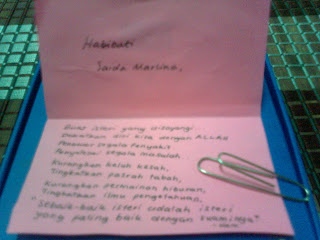 Habibati
Saida Marlina,
Buat isteri yang disayangi
Dekatkan diri kita dengan ALLAH
Penawar segala Penyakit
Penyelesai segala masalah
Kurangkan keluh kesah,
Tingkatkan pasrah tabah,
Kurangkan permainan hiburan,
Tingkatkan ilmu pengetahuan,
"Sebaik-baik isteri adalah isteri
yang paling baik dengan suaminya"